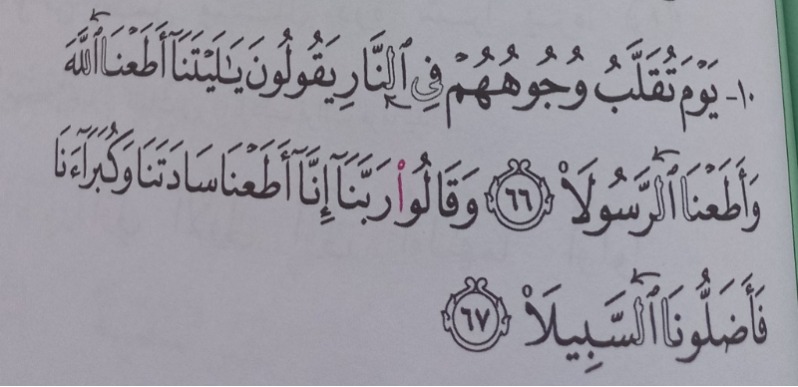 ١٠- يَوْمَ تُقَلَّبُ وُجُوهُهُمْ فِي ٱلنَّارِ يَقُولُونَ يَـٰلَيْتَنَآ أَطَعْنَا ٱللَّهَ
وَأَطَعْنَا ٱلرَّسُولَا۠ ٦٦ وَقَالُوا۟ رَبَّنَآ إِنَّآ أَطَعْنَا سَادَتَنَا وَكُبَرَآءَنَا
فَأَضَلُّونَا ٱلسَّبِيلَا۠ ٦٧